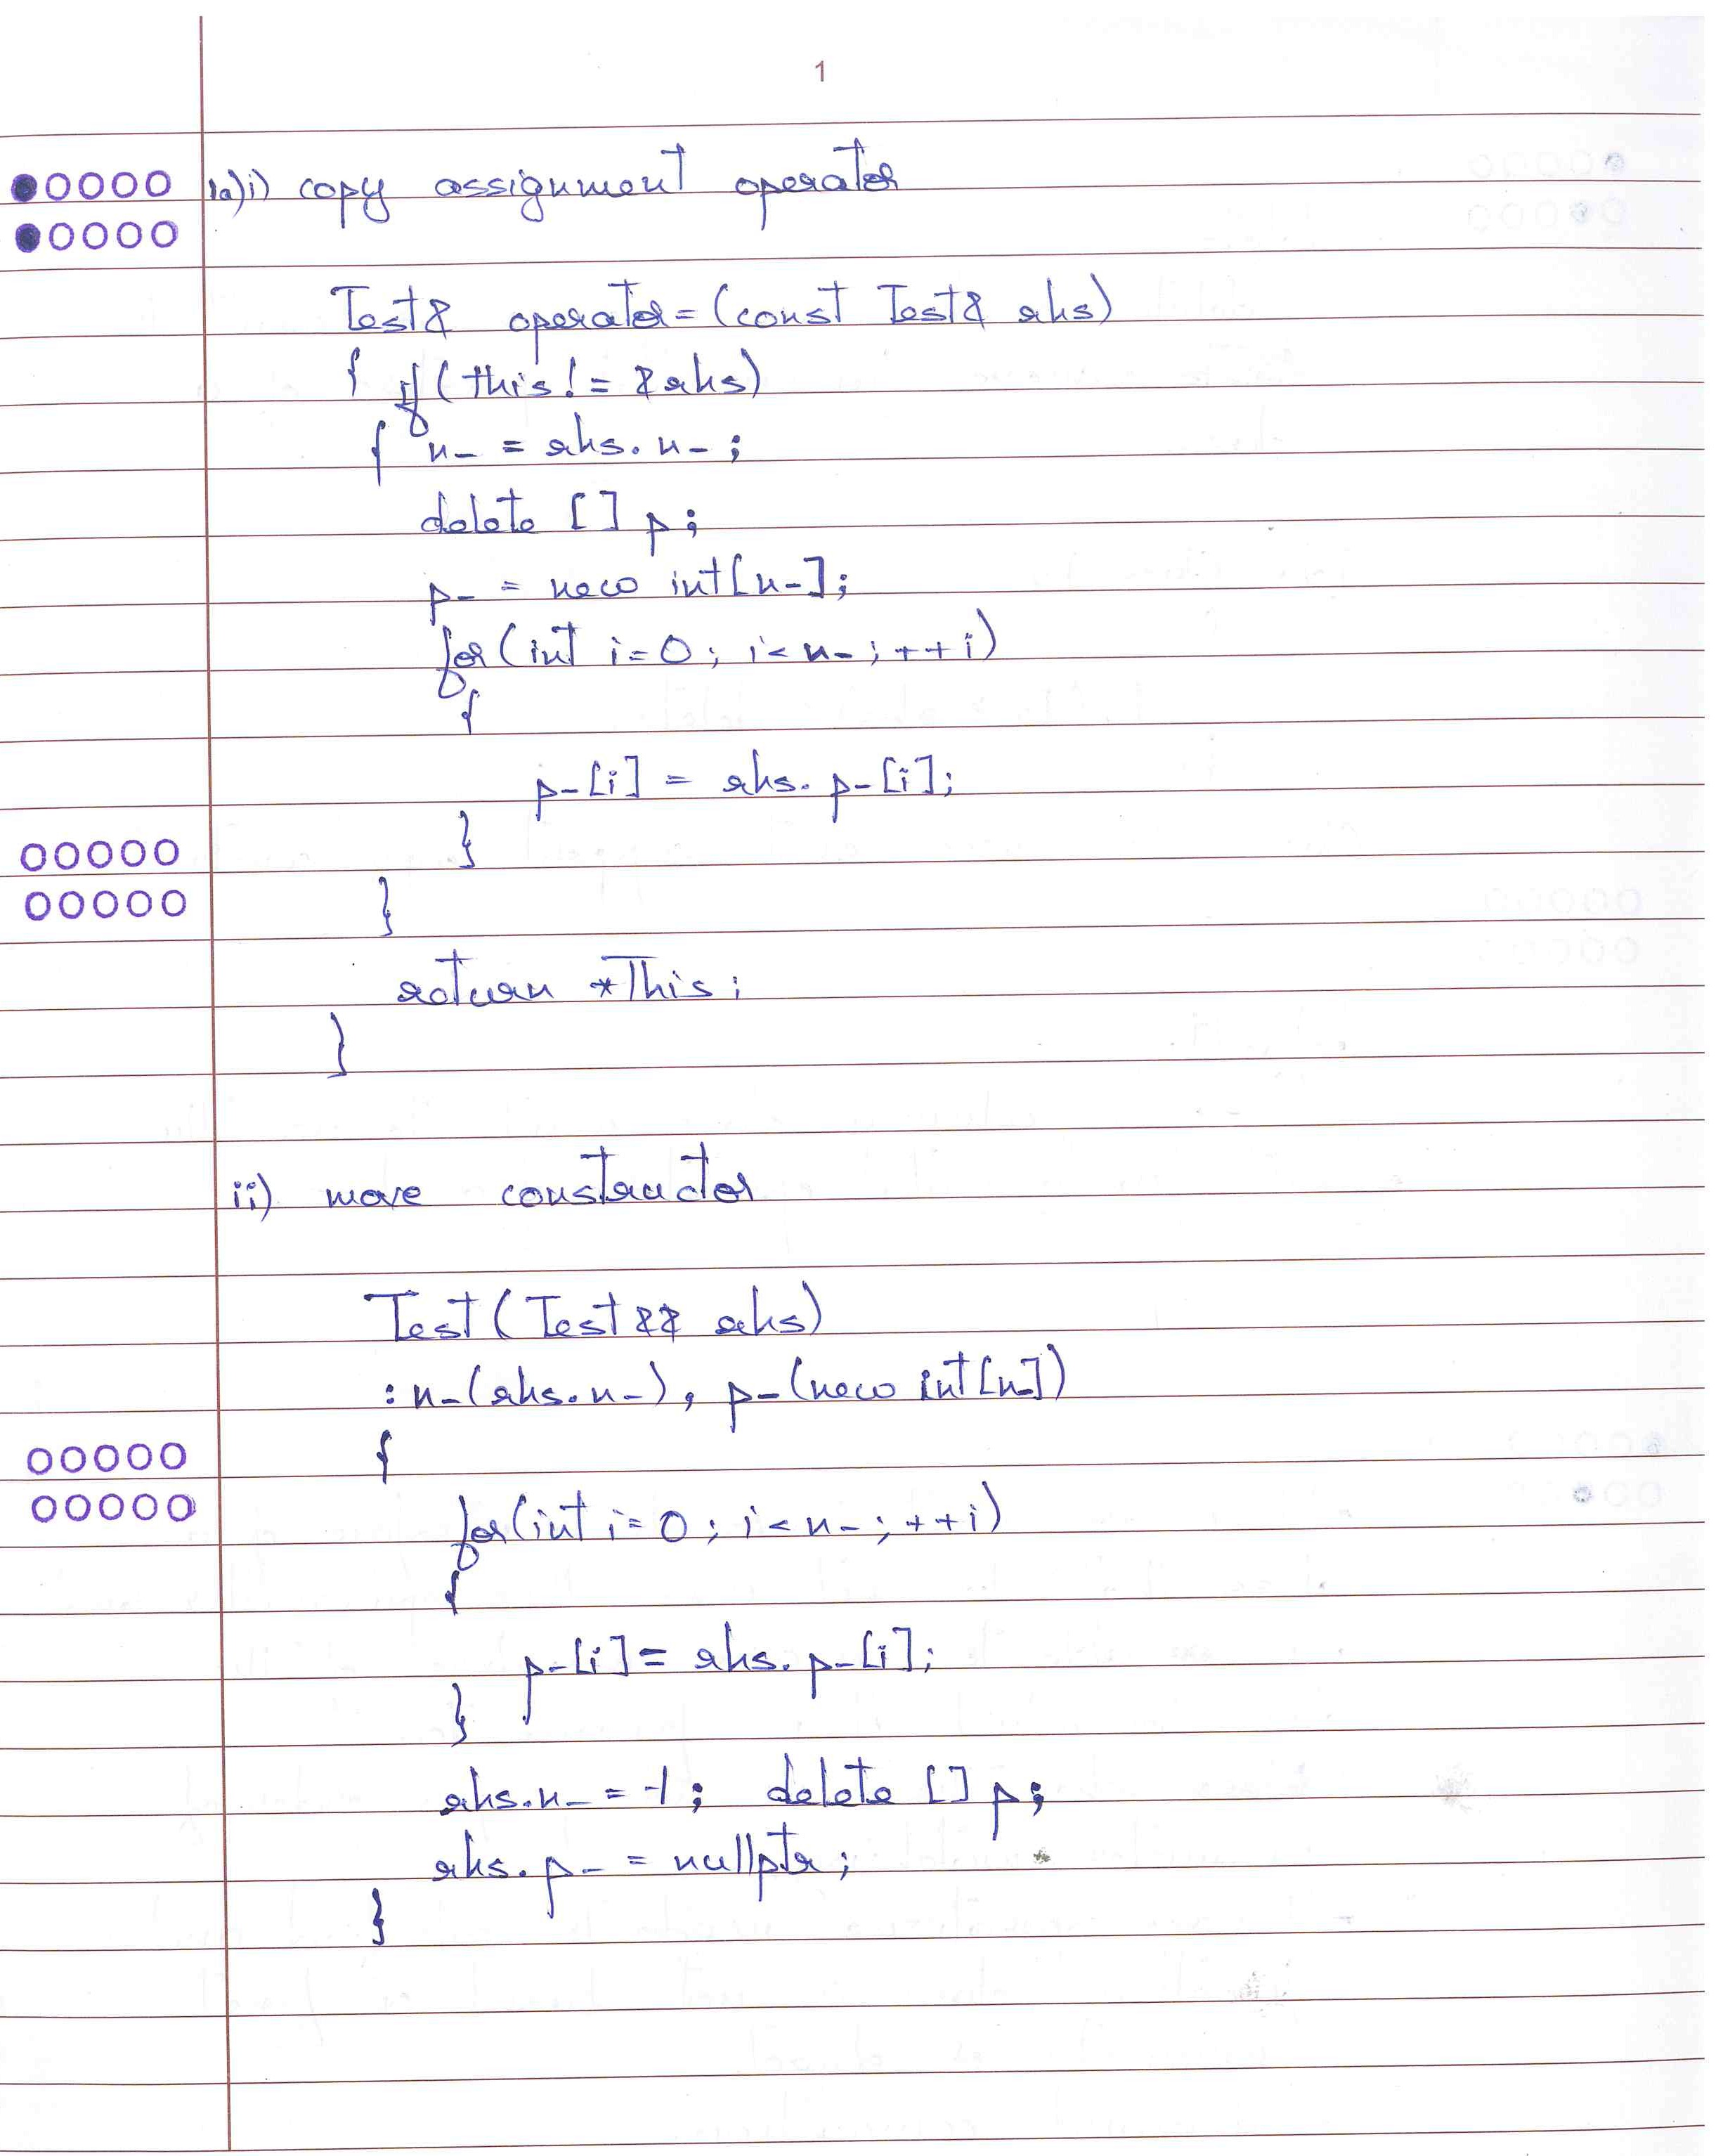 1
1a)i) copy assignment operator
Test& operator=(const Test& rhs)
{ if(this != &rhs)
{ n_ = rhs.n_;
delete [] p;
p_ = new int[n_];
for(int i=0; i<n_; ++i)
{
p_[i] = rhs.p_[i];
}
}
return *This;
}
ii) move constructor
Test(Test&& rhs)
:n_(rhs.n_), p_(new int[n_])
{
for(int i=0; i<n_; ++i)
{
p_[i] = rhs.p_[i];
}
rhs.n_ = -1; delete [] p;
rhs.p_ = nullptr;
}